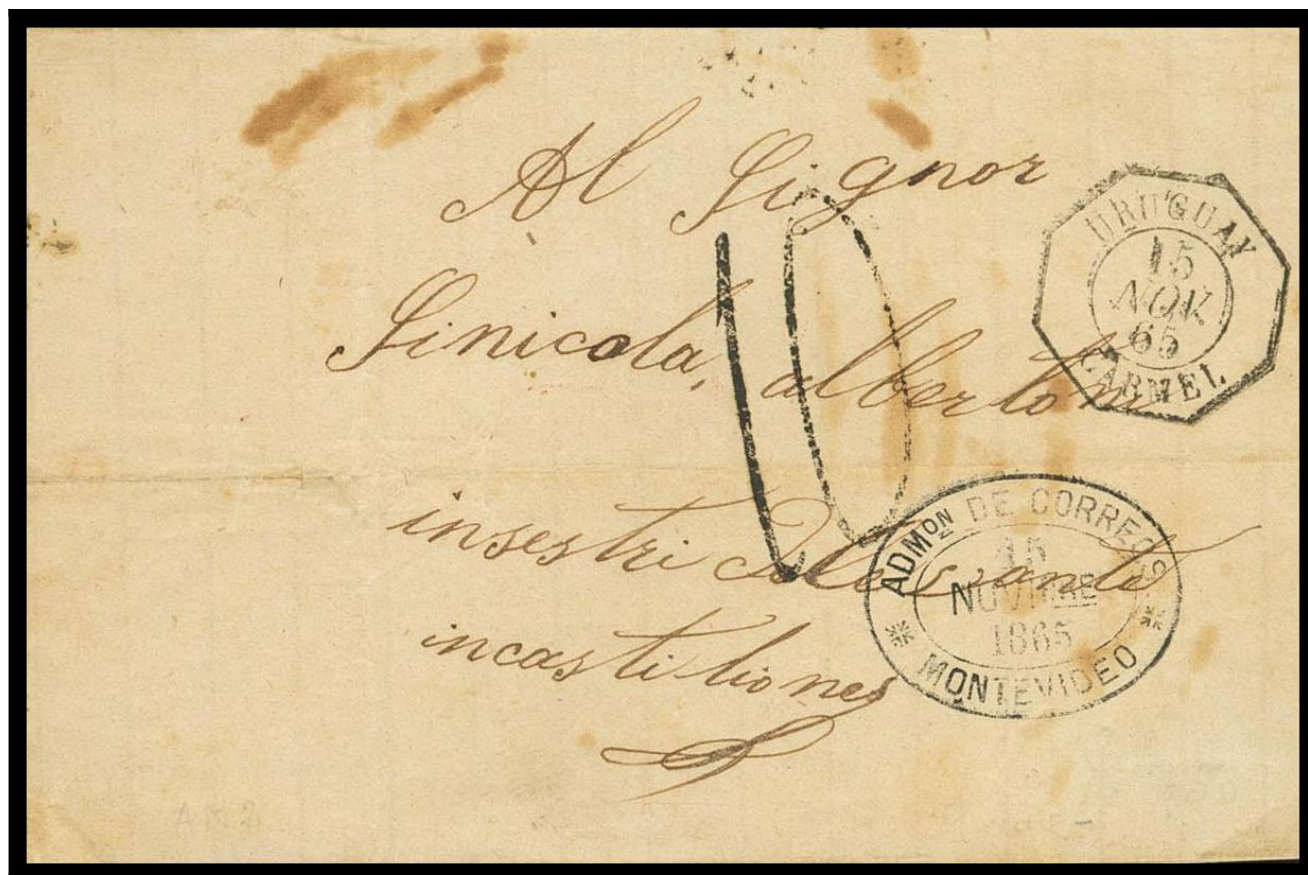 Al Signor
Sinicola, albertoni
insestri
incastiliones
10
URUGUAY
15
NOV.
65
CARMEL
ADMON DE CORREOS
15
NOVIEMBRE
1865
MONTEVIDEO